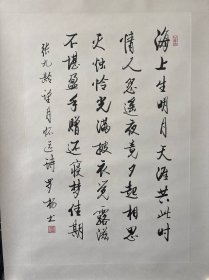 海上生明月天涯共此时
情人怨遥夜竟夕起相思
灭烛怜光满披衣觉露滋
不堪盈手赠还寝梦佳期
张九龄望月怀远诗